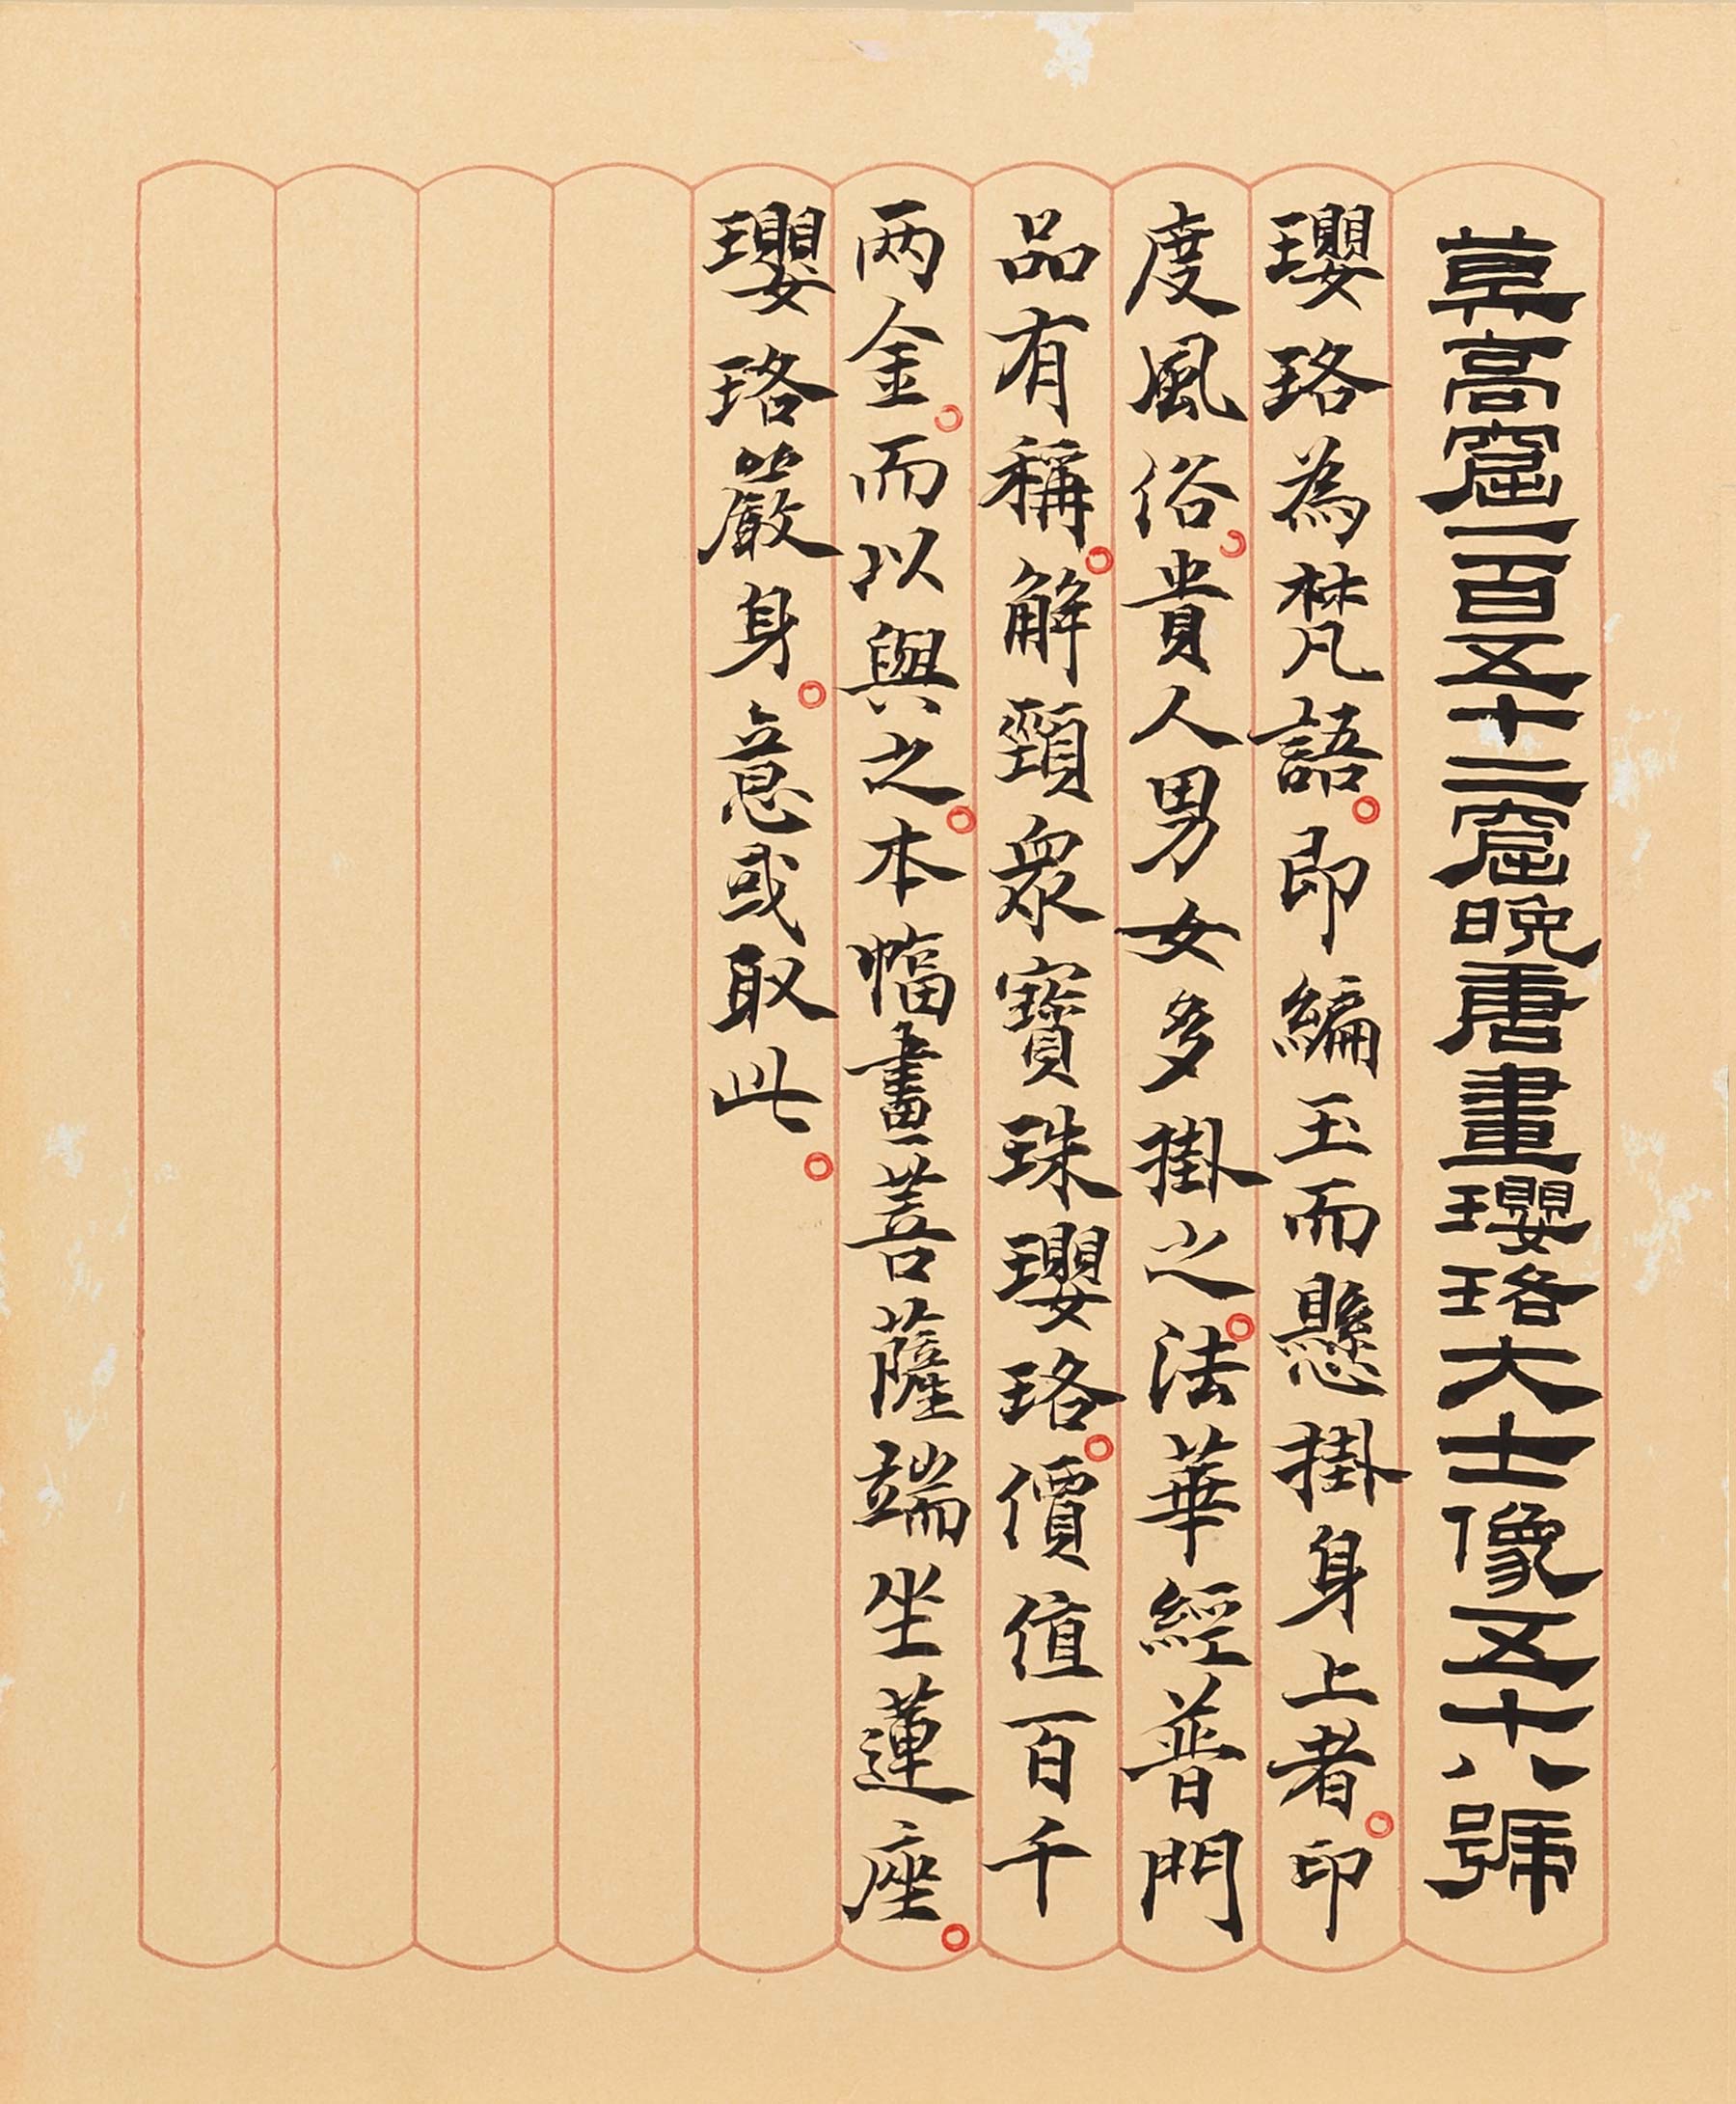 莫高窟一百五十二窟晚唐畫瓔珞大士像五十八號
瓔珞為梵語。即編玉而懸掛身上者。印
度風俗。貴人男女多掛之。法華經普門
品有稱。解頸眾寶珠瓔珞。價值百千
两金。而以與之。本幅畫菩薩端坐蓮座。
瓔珞嚴身。意或取此。